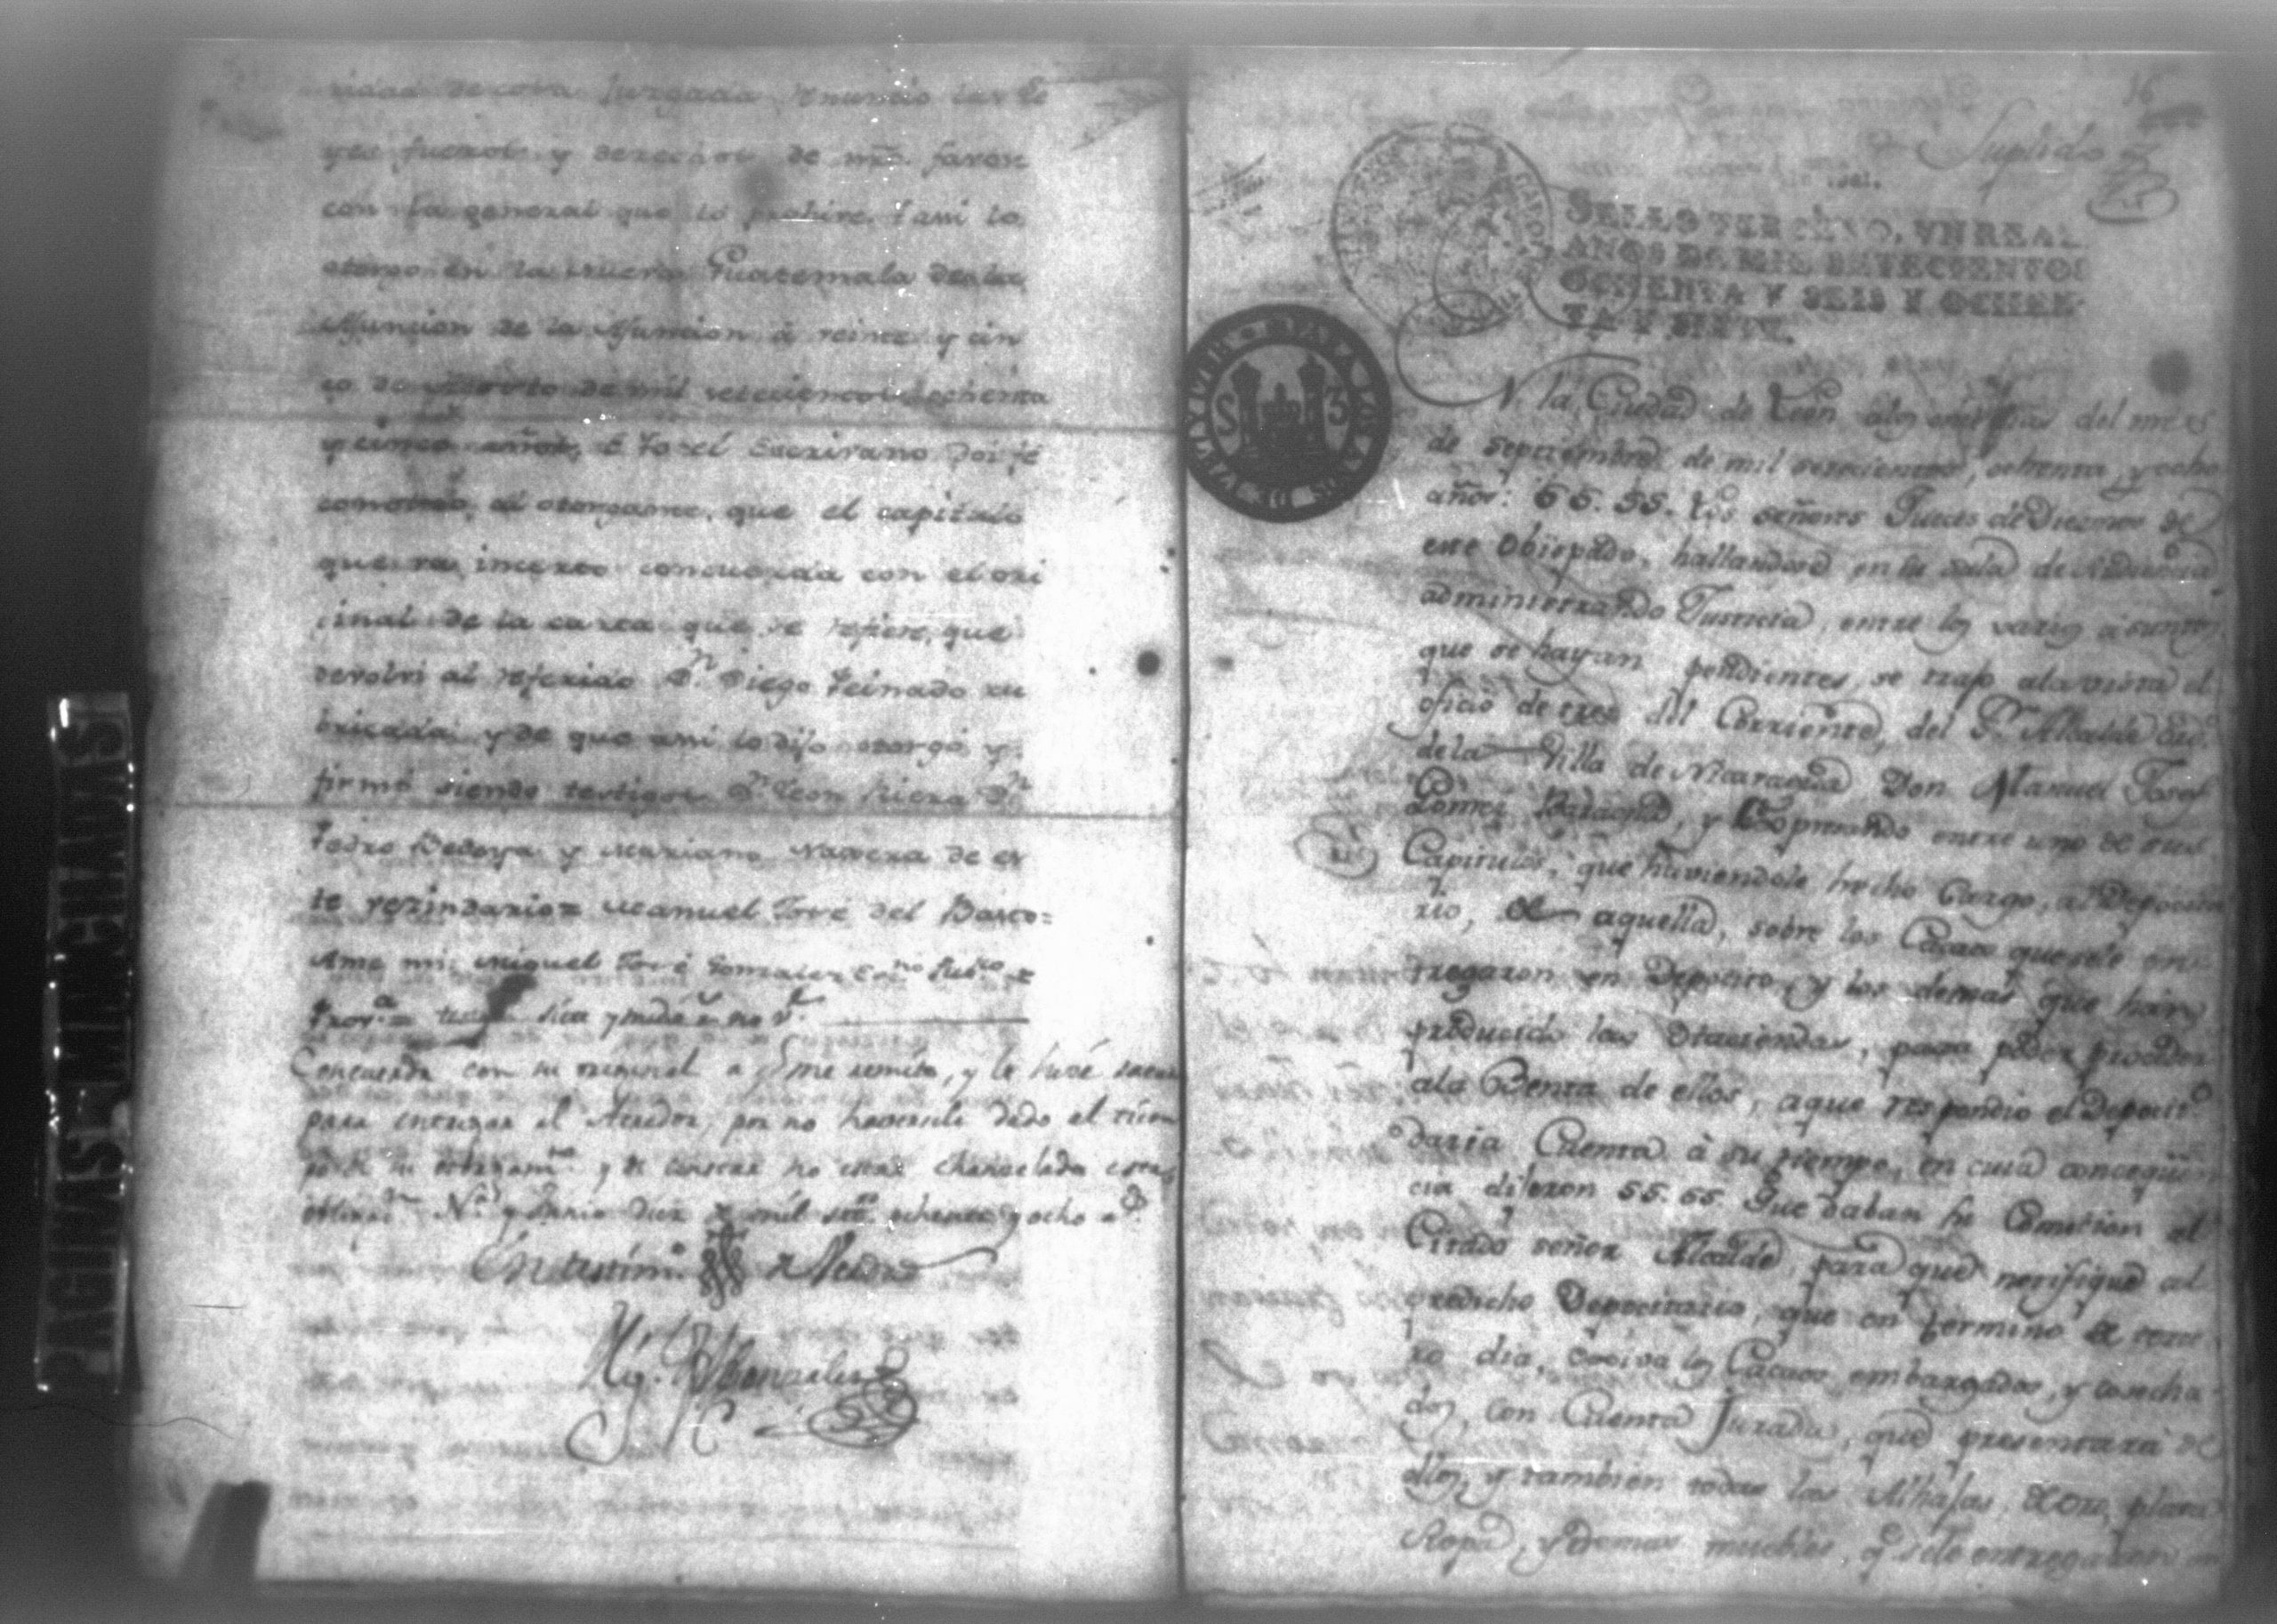 ridad de cosa Juzgada renuncio las le
yes fueros y derechos de mi favor
con la general que lo prohive. I assi lo
otorgo en la nueva Guatemala de la
Assuncion de la Assuncion à veinte y cin
co de de mil setecientos ochenta
y cinco años, E Yo el Escrivano Doi fé
conosco al otorgante, que el capitulo
que va incerto concuerda con el ori
jinal de la carta que se refiere, que
devolvi al referido Dn Diego Peinado ru
bricada y de que assi lo dijo otorgó y
firmó siendo testigos Dn Leon Dn
Pedro Bedoya y Mariano Navera de es
te vezindario = Manuel José del Barco =
Ante mi: Miguel José Gonzalez Esno
Concuerda con su original a q me remito, y le hice sacar
para entregar al Acredor, por no haversele dado al tiem
po de su otorgamto y de constar no estar chancelada esta
obligacn Na y Junio diez de mil sets ochenta y ocho as
En testimo de Verdad
Mig. José Gonzalez
16
Suplido
SELLO TERCERO, VN REAL
AÑOS DE MIL SETECIENTOS
OCHENTA Y SEIS Y OCHEN-
TA Y SIETE.
S 3
N. la Ciudad de Leon dias del mes
de septiembre de mil setecientos, ochenta, y ocho
años: SS. SS. Los señores Jueces de Diezmos de
este Obispado, hallandose en su sala de Audiencia
administrando Justicia, entre los varios asuntos
que se hayan pendientes, se trajo ala vista el
oficio de tres del Corriente, del Sr. Alcalde
de la Villa de Nicaragua Don Manuel Josef
Gomez y expresando entre uno de sus
Capitulos, que haviendole hecho Cargo, al Deposita
rio, de aquella, sobre los Cacaos que se le en
tregaron en Deposito, y los demas que han
producido las Haciendas, para poder proceder
ala Benta de ellos, aque respondio el Deposito
daria Cuenta à su tiempo, en cuia conceqüen
cia dijeron SS. SS. Que daban su Comision al
Citado señor Alcalde, para que notifique al
predicho Depocitario, que en termino de terce
ro dia, exiva los Cacaos embargados, y cosecha
dos, con Cuenta Jurada, que presentara de
ellos, y tambien todas las Alhajas, de oro, plata
Ropa, y demas muebles, q se le entregaron en
PAGINAS MUTILADAS